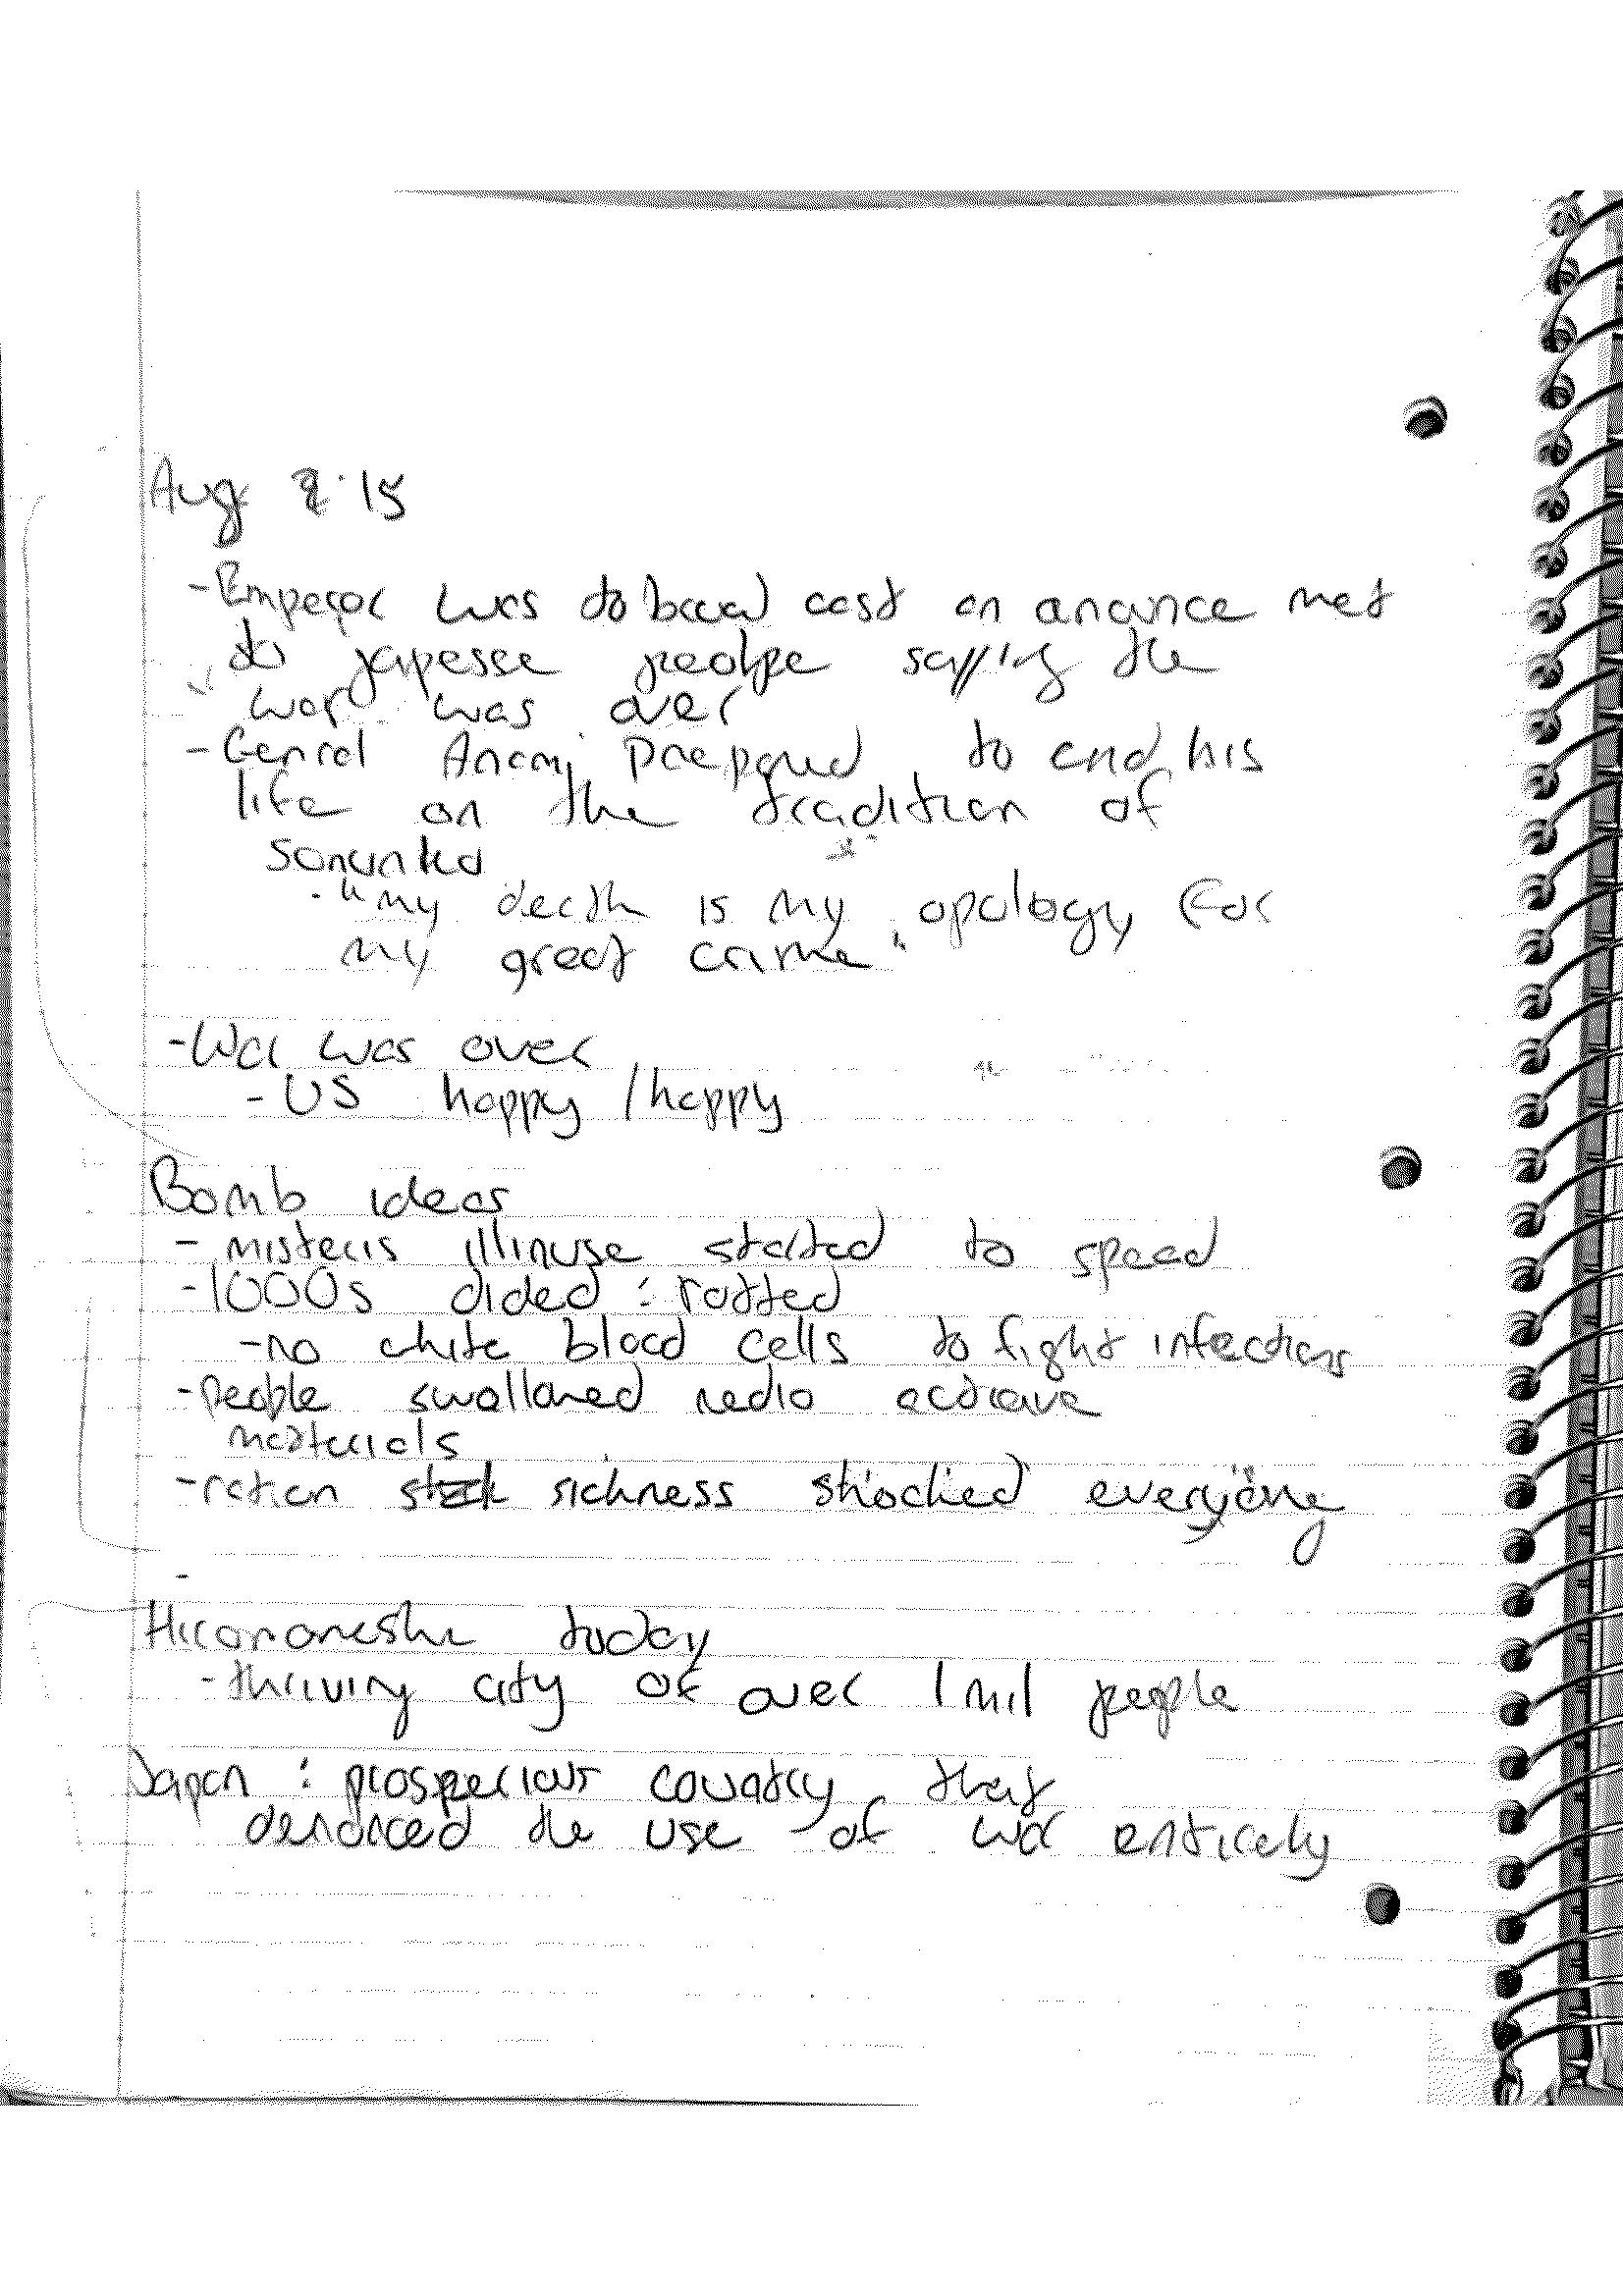 Aug 15
- Emperor was to broad cast an anance met
to japesse peolpe saying the
war was over
- Genral Anami prepared to end his
life on the tradition of
- "my death is my apology for
my great crime"
- War was over
- US happy / happy
Bomb ideas
- misteris illinuse started to spead
- 1000s dided : rotted
- no white blood cells to fight infections
- people swallowed radio actieave
materials
- ration sickness shocked everyone
-
today
- thriving city of over 1 mil people
Japan : prosperious country that
denonced the use of war entirely